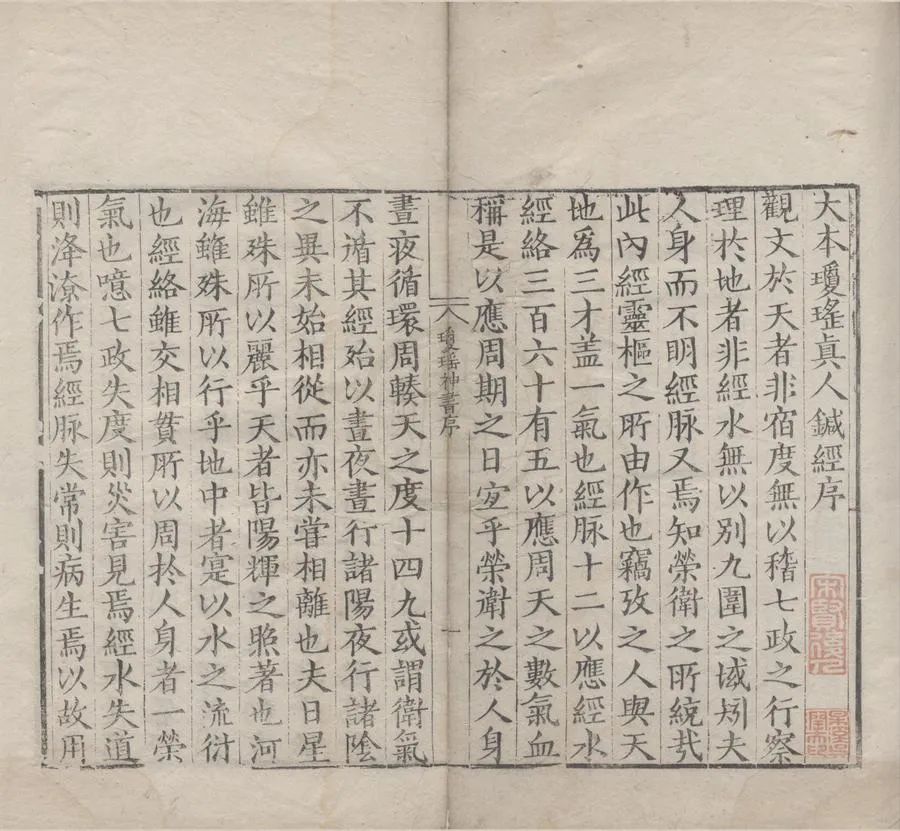 大本瓊瑤真人鍼經序
觀文於天者非宿度無以稽七政之行察
理於地者非經水無以別九圍之域矧夫
人身而不明經脉又焉知榮衛之所統㢤
此內經靈樞之所由作也竊攷之人與天
地爲三才盖一氣也經脉十二以應經水
經絡三百六十有五以應周天之數氣血
稱是以應周期之日宐乎榮衛之於人身
瓊瑤神書序
一
晝夜循環周輳天之度十四九或謂衛氣
不循其經始以晝夜晝行諸陽夜行諸陰
之異未始相從而亦未嘗相離也夫日星
雖殊所以麗乎天者皆陽輝之昭著也河
海雖殊所以行乎地中者寔以水之流衍
也經絡雖交相貫所以周於人身者一榮
氣也噫七政失度則災害見焉經水失道
則洚潦作焉經脉失常則病生焉以故用